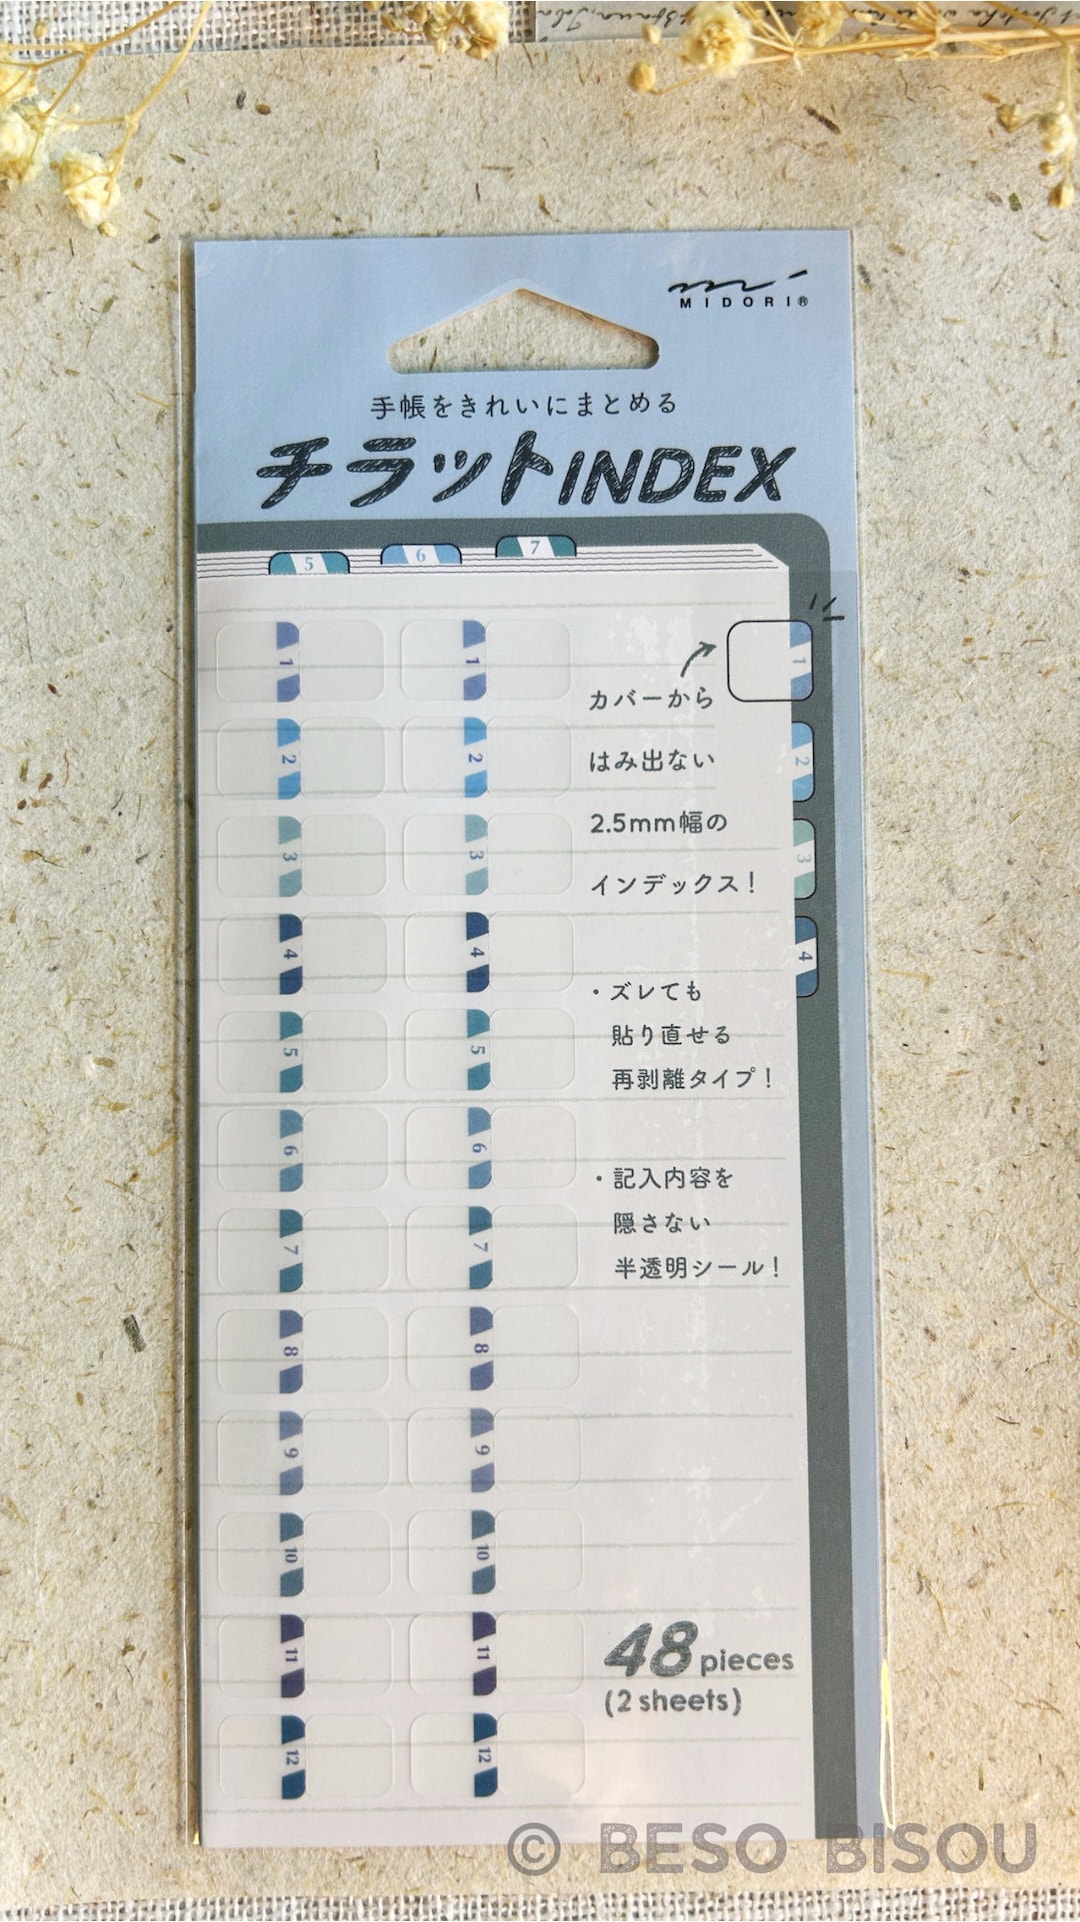 MIDORI®
手帳をきれいにまとめる
チラットINDEX
5 6 7
1 1 1
2 2 2
3 3 3
4 4 4
5 5
6 6
7 7
8 8
9 9
10 10
11 11
12 12
カバーから
はみ出ない
2.5mm幅の
インデックス!
・ズレても
貼り直せる
再剥離タイプ!
・記入内容を
隠さない
半透明シール!
48 pieces
(2 sheets)
© BESO BISOU